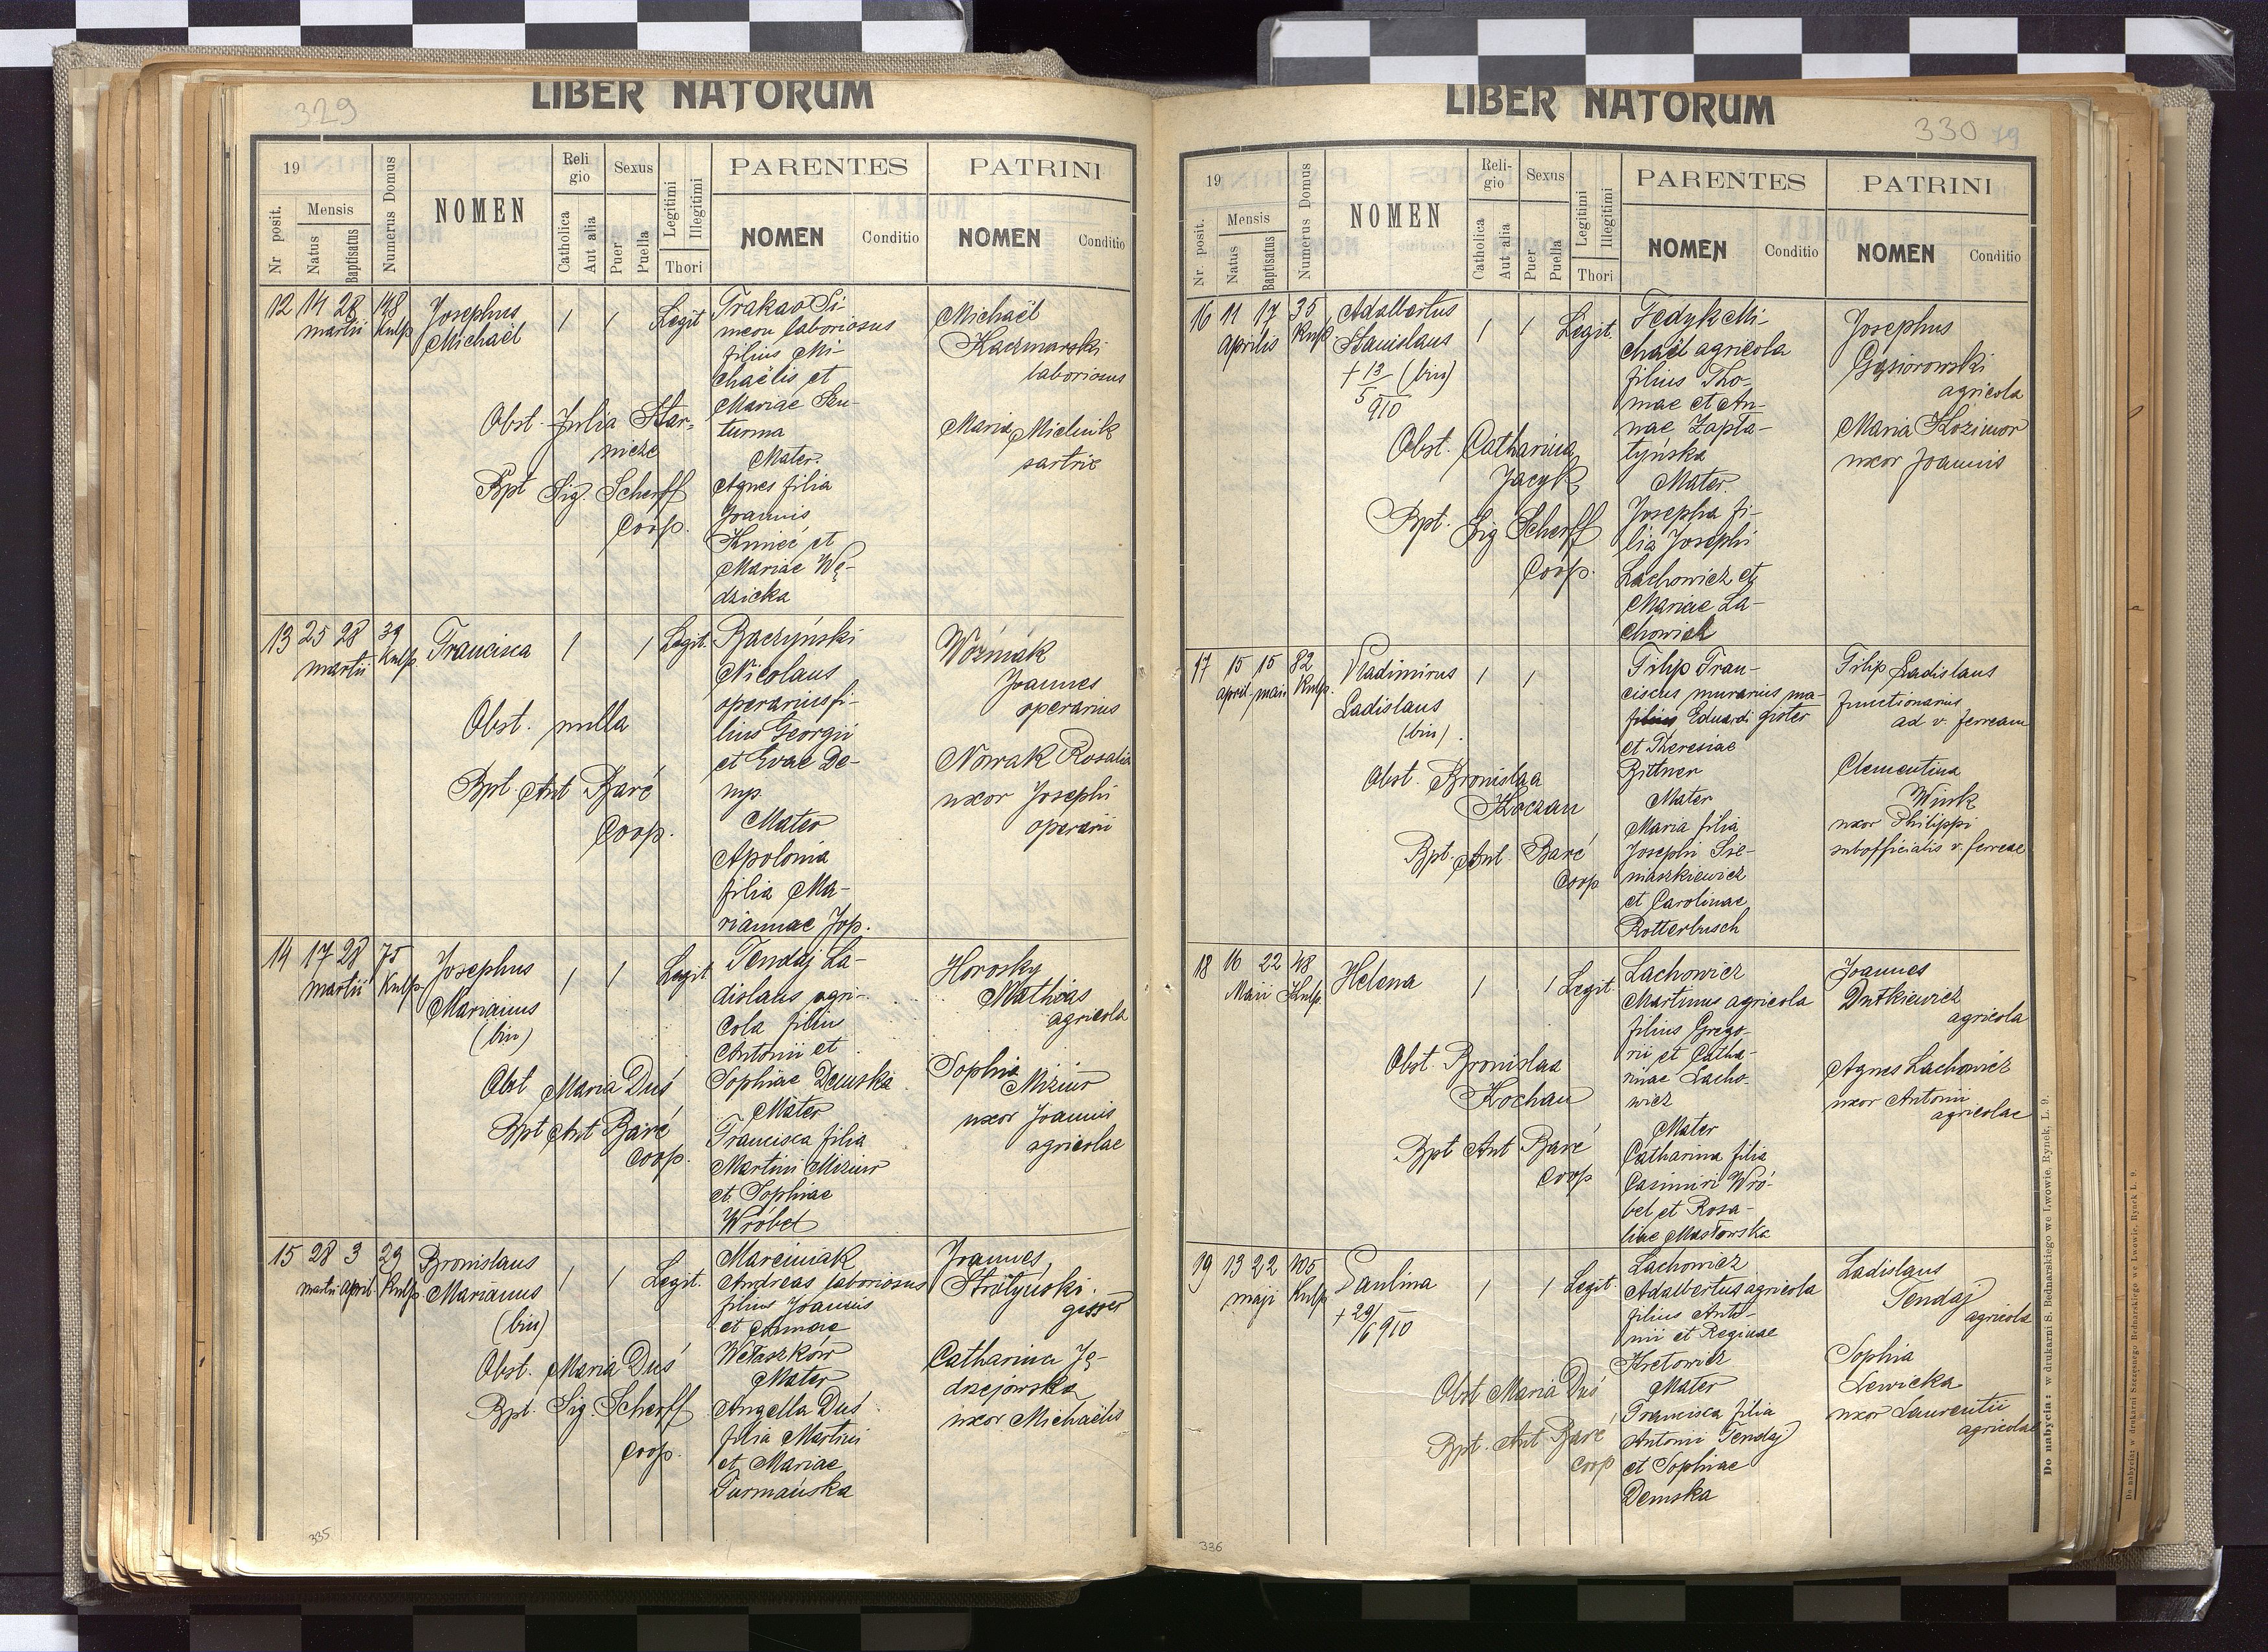 329
LIBER NATORUM
19
Nr posit.
Mensis
Natus
Baptisatus
Numerus Domus
NOMEN
Religio
Catholica
Aut alia
Sexus
Puer
Puella
Legitimi
Illegitimi
Thori
PARENTES
NOMEN Conditio
PATRINI
NOMEN Conditio
12 14 28 148 Josephus 1 1 Legit
martii Kulp. Michaël
Obst. Julia Star-
nicze
Bpt Sig. Scherff
Coop.
Trakao Si-
meon laboriosus
filius Mi-
chaëlis et
Mariae Szu-
turma
Mater.
Agnes filia
Joannis
Kmieć et
Mariae Wę-
dzicka
Michaël
Kaczmarski
laboriosus
Maria Mielnik
sartrix
13 25 28 39 Francisca 1 1 Legit.
martii Kulp.
Obst. nulla
Bpt. Ant Barć
Coop.
Baczyński
Nicolaus
operarius fi-
lius Georgii
et Evae De-
myo
Mater
Apolonia
filia Ma-
riannae Jop.
Woźniak
Joannes
operarius
Nowak Rosalia
uxor Josephi
operarii
14 17 28 75 Josephus 1 1 Legit
martii Kulp. Marianus
(bin)
Obst Maria Duś
Bpt Ant Barć
Coop.
Tendaj La-
dislaus agri-
cola filius
Antonii et
Sophiae Demska
Mater
Francisca filia
Martini Miziur
et Sophiae
Wróbel
Horosky
Mathias
agricola
Sophia
Miziur
uxor Joannis
agricolae
15 28 3 29 Bronislaus 1 1 Legit.
martii april Kulp. Marianus
(bin)
Obst. Maria Duś
Bpt. Sig. Scherff
Coop.
Marciniak
Andreas laboriosus
filius Joannis
et Annae
Wetaszków
Mater
Angella Duś
filia Martini
et Mariae
Turmańska
Joannes
Stratyński
gisser
Catharina Ję-
drzejowska
uxor Michaëlis
335
330 79
LIBER NATORUM
19
Nr. posit.
Mensis
Natus
Baptisatus
Numerus Domus
NOMEN
Reli-
gio
Catholica
Aut alia
Sexus
Puer
Puella
Legitimi
Illegitimi
Thori
PARENTES
NOMEN Conditio
PATRINI
NOMEN Conditio
16 11 17 35 Adalbertus 1 1 Legit.
Aprilis Kulp. Stanislaus
+ 13/5 (bin)
910
Obst. Catharina
Jacyk
Bpt. Sig Scherff
Coop.
Fedyk Mi-
chaël agricola
filius Tho-
mae et An-
nae Zapla-
tyńska
Mater.
Josepha fi-
lia Josephi
Lachowicz et
Mariae La-
chowicz
Josephus
Gąsiorowski
agricola
Maria Kozimor
uxor Joannis
17 15 15 82 Vladimirus 1 1
april. maii Kulp. Ladislaus
(bin).
Obst. Bronislaa
Koczan
Bpt. Ant. Barć
Coop
Filip Fran-
ciscus murarius ma-
filius Eduardi gister
et Theresiae
Bittner
Mater
Maria filia
Josephi Sie-
niaszkiewicz
et Carolinae
Rotterbusch
Filip Ladislaus
functionarius
ad v. ferream
Clementina
Wink
uxor Philippi
subofficialis v. ferreae
18 16 22 48 Helena 1 1 Legit.
Maii Kulp.
Obst. Bronislaa
Kochan
Bpt Ant Barć
Coop
Lachowicz
Martinus agricola
filius Grego-
rii et Catha-
rinae Lacho-
wicz
Mater
Catharina filia
Casimiri Wró-
bel et Rosa-
liae Masłowska
Joannes
Dutkiewicz
agricola
Agnes Lachowicz
uxor Antonii
agricolae
19 13 22 105 Paulina 1 1 Legit
maji Kulp. + 29/6 910
Obst Maria Duś
Bpt. Ant Barć
Coop
Lachowicz
Adalbertus agricola
filius Anto-
nii et Reginae
Kretowicz
Mater
Francisca filia
Antonii Tendaj
et Sophiae
Demska
Ladislaus
Tendaj
agricola
Sophia
Lewicka
uxor Laurentii
agricolae
336
Do nabycia: w drukarni S. Bednarskiego we Lwowie, Rynek, L. 9.
Do nabycia: w drukarni Szczęsnego Bednarskiego we Lwowie, Rynek L. 9.